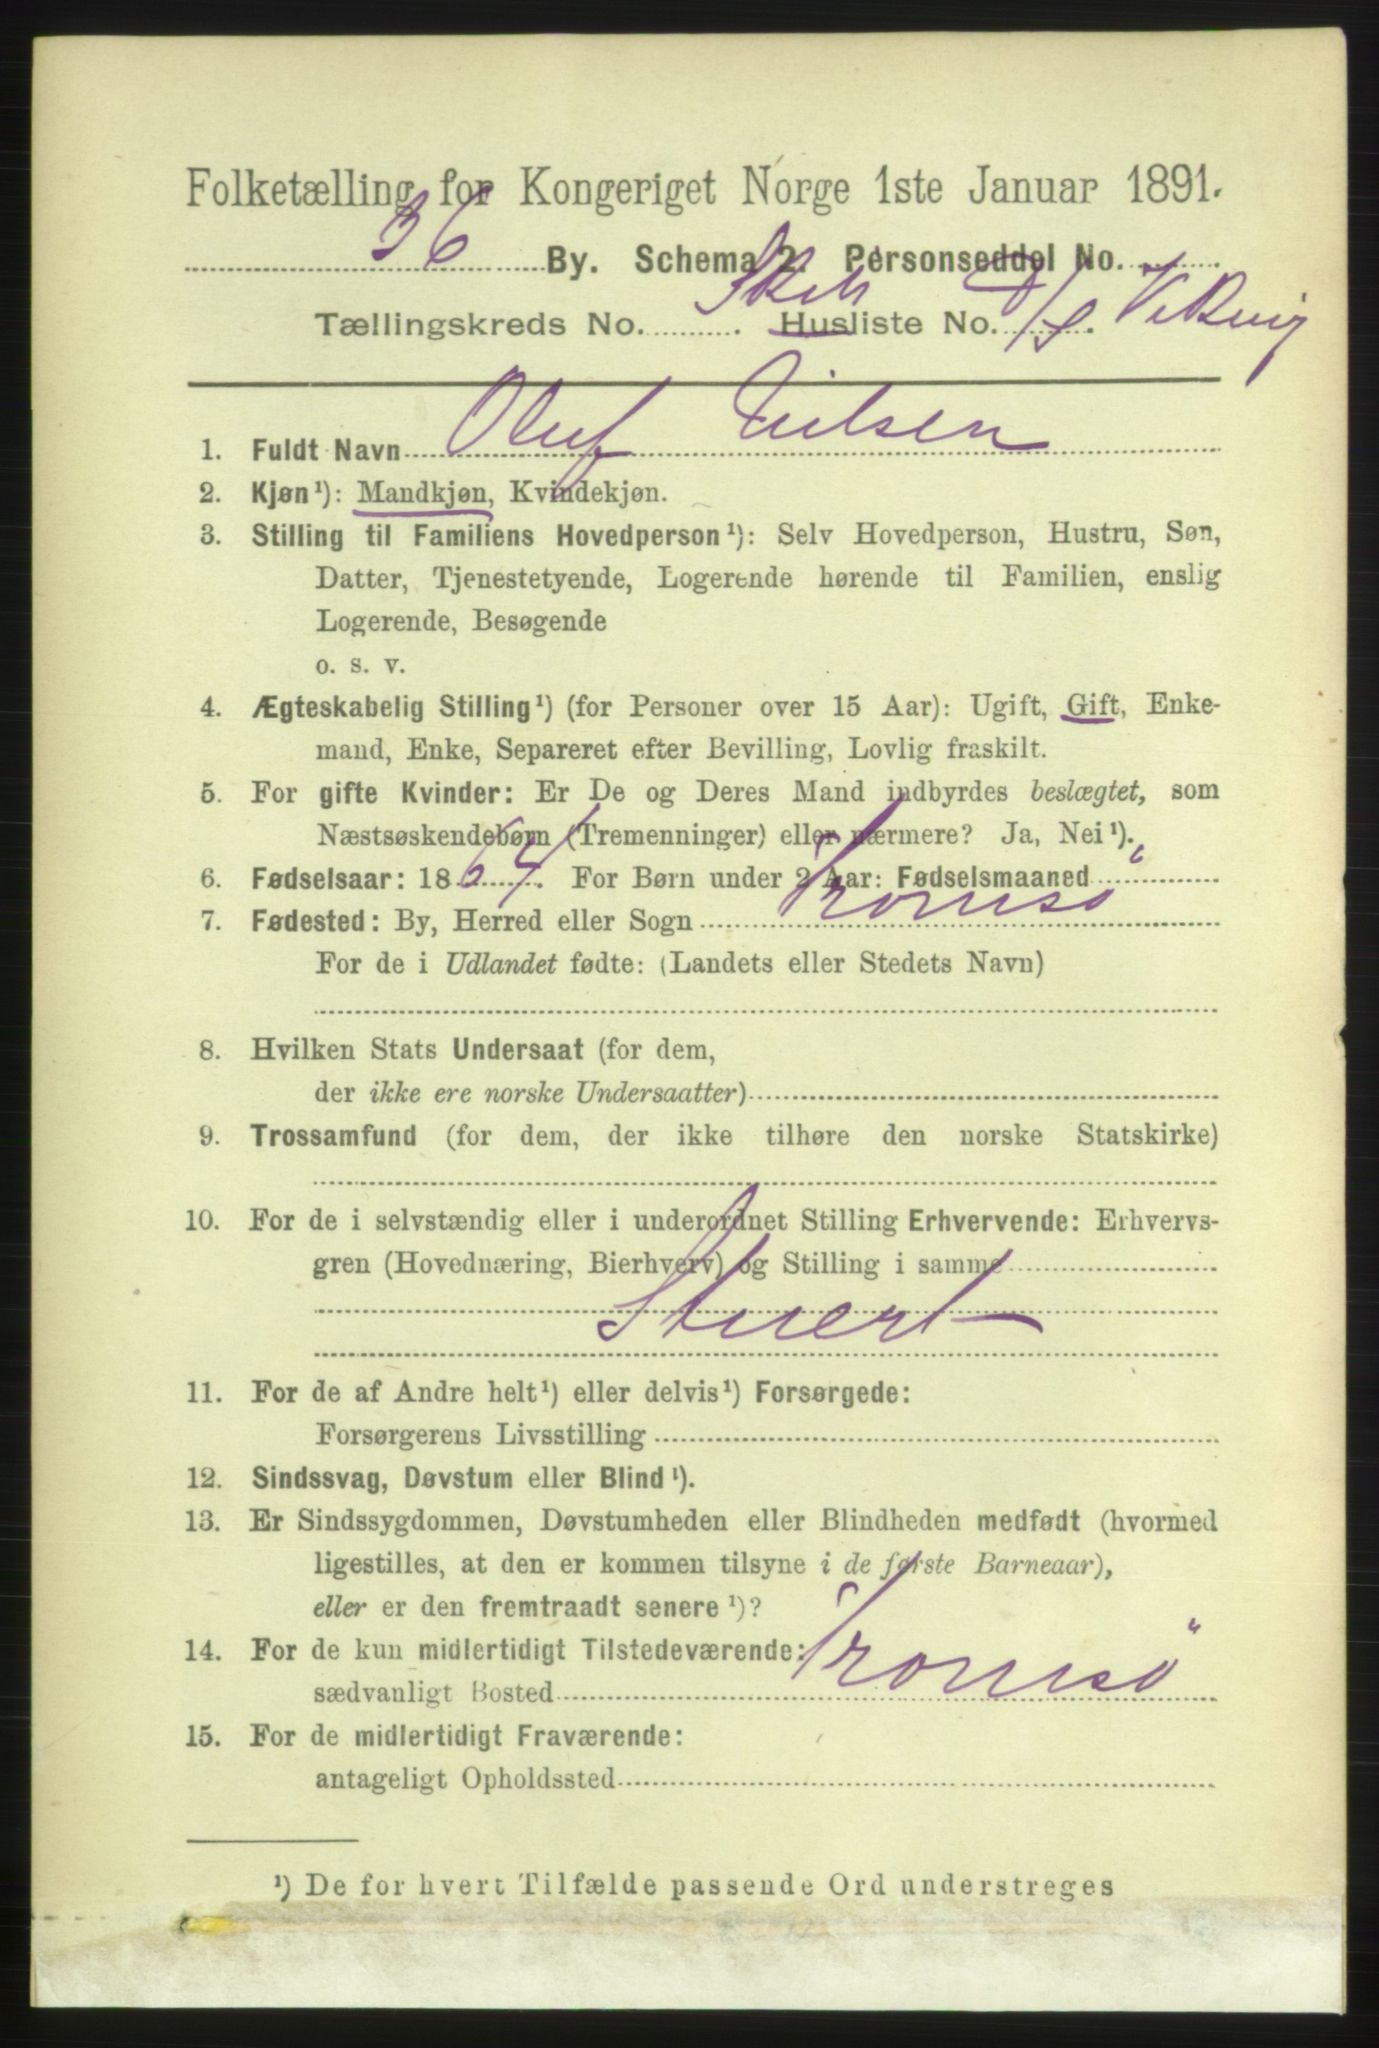 Folketælling for Kongeriget Norge 1ste Januar 1891.
36 By. Schema 2. Personseddel No.
Tællingskreds No. Skib Husliste No. D/S Viking
1. Fuldt Navn Oluf Nilsen
2. Kjøn¹): Mandkjøn, Kvindekjøn.
3. Stilling til Familiens Hovedperson¹): Selv Hovedperson, Hustru, Søn,
Datter, Tjenestetyende, Logerende hørende til Familien, enslig
Logerende, Besøgende
o. s. v.
4. Ægteskabelig Stilling¹) (for Personer over 15 Aar): Ugift, Gift, Enke-
mand, Enke, Separeret efter Bevilling, Lovlig fraskilt.
5. For gifte Kvinder: Er De og Deres Mand indbyrdes beslægtet, som
Næstsøskendebørn (Tremenninger) eller nærmere? Ja, Nei¹).
6. Fødselsaar: 1864. For Børn under 2 Aar: Fødselsmaaned
7. Fødested: By, Herred eller Sogn Tromsö
For de i Udlandet fødte: (Landets eller Stedets Navn)
8. Hvilken Stats Undersaat (for dem,
der ikke ere norske Undersaatter)
9. Trossamfund (for dem, der ikke tilhøre den norske Statskirke)
10. For de i selvstændig eller i underordnet Stilling Erhvervende: Erhvervs-
gren (Hovednæring, Bierhverv) og Stilling i samme
Stuert
11. For de af Andre helt¹) eller delvis¹) Forsørgede:
Forsørgerens Livsstilling
12. Sindssvag, Døvstum eller Blind¹).
13. Er Sindssygdommen, Døvstumheden eller Blindheden medfødt (hvormed
ligestilles, at den er kommen tilsyne i de første Barneaar),
eller er den fremtraadt senere¹)?
14. For de kun midlertidigt Tilstedeværende:
sædvanligt Bosted Tromsö
15. For de midlertidigt Fraværende:
antageligt Opholdssted
¹) De for hvert Tilfælde passende Ord understreges